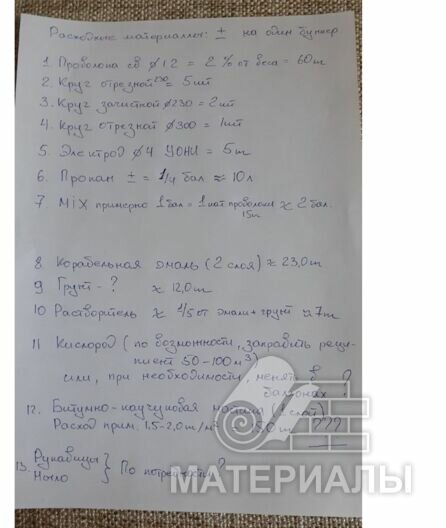 Расходные материаллы: ± на один бункер
1. Проволока св ø12 = 2% от веса = 60т
2. Круг отрезной 230 = 5шт
3. Круг зачистной ø230 = 2шт
4. Круг отрезной ø300 = 1шт
5. Электрод ø4 УОНИ = 5т
6. Пропан ± = 1/4 бал ≈ 10л
7. Mix примерно 1бал = 1кат проволоки 15т ≈ 2 бал.
8 Корабельная эмаль (2 слоя) ≈ 23,0т
9 Грунт - ? ≈ 12,0т
10 Растворитель ≈ 1/5 от эмали + грунт ≈ 7т
11 Кислород (по возможности, заправить реци-
пиент 50-100м³)
или, при необходимости, менять в
балонах ?
12. Битумно-каучуковая мастика
Расход прим. 1.5-2,0т/м² ???
13. Рукавицы } По потребности?
Мыло
МАТЕРИАЛЫ